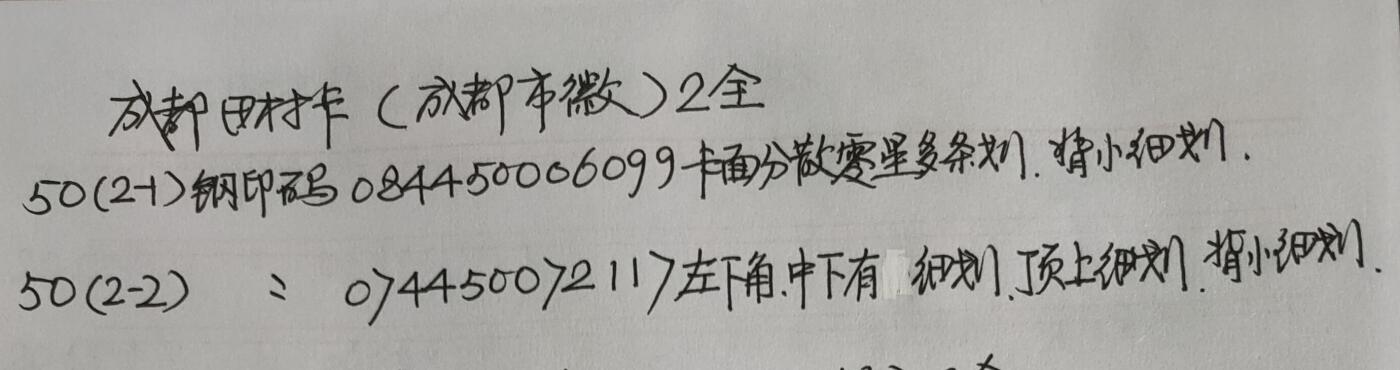 成都田村卡（成都市徽）2全
50(2-1)钢印码084450006099卡面分散零星多条划.背小细划.
50(2-2) : 074450072117左下角.中下有 细划.顶上细划.背小细划.